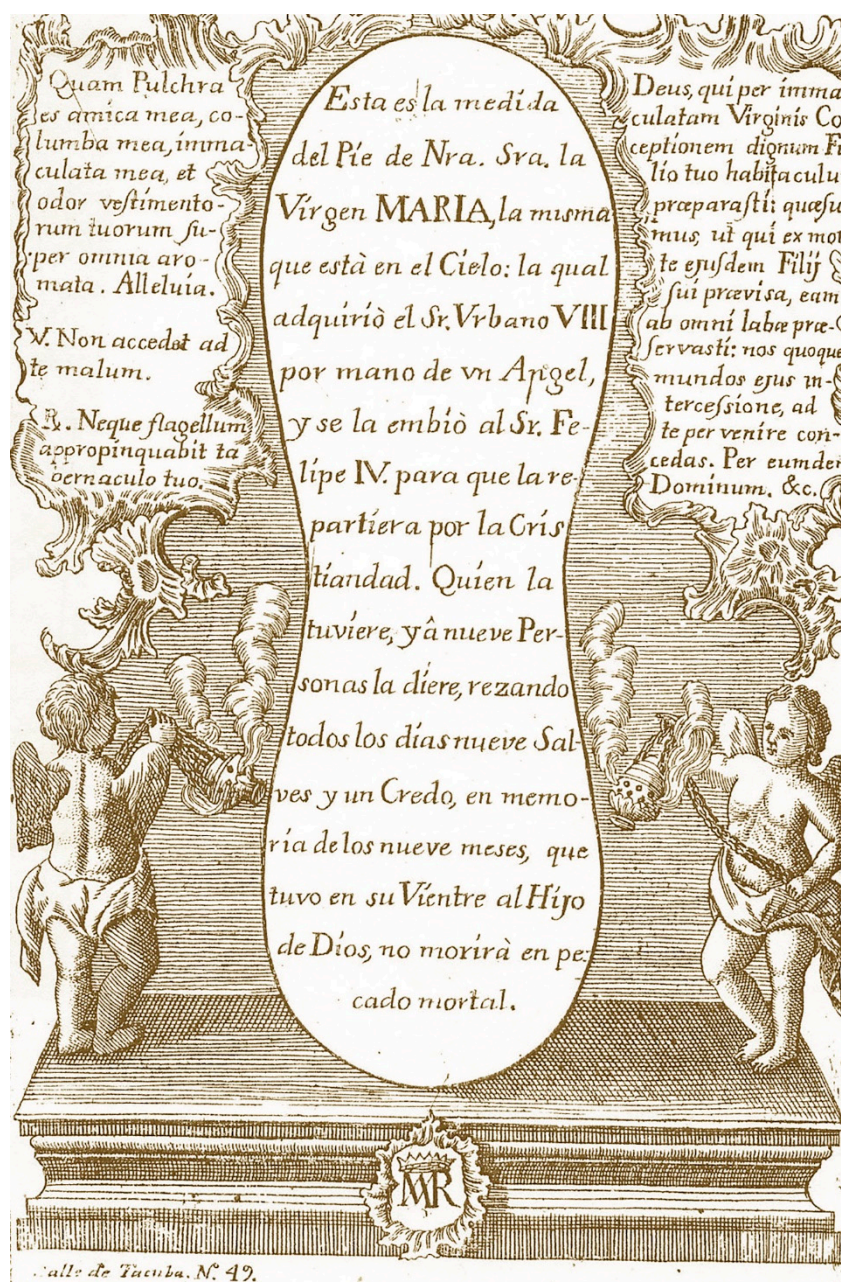 Quam Pulchra
es amica mea, co-
lumba mea, imma-
culata mea, et
odor veſtimento-
rum tuorum ſu-
per omnia aro-
mata. Alleluia.
V. Non accedet ad
te malum.
R. Neque flagellum
appropinquabit ta
bernaculo tuo.
Esta es la medida
del Pie de Nra. Sra. la
Virgen MARIA, la misma
que està en el Cielo: la qual
adquiriò el Sr. Vrbano VIII
por mano de vn Angel,
y se la embiò al Sr. Fe-
lipe IV. para que la re-
partiera por la Cris
tiandad. Quien la
tuviere, y â nueve Per-
sonas la diere, rezando
todos los dias nueve Sal-
ves y un Credo, en memo-
ria de los nueve meses, que
tuvo en su Vientre al Hijo
de Dios, no morirà en pe-
cado mortal.
Deus, qui per imma
culatam Virginis Co
ceptionem dignum Fi
lio tuo habitaculu
præparaſti: quæſu
mus, ut qui ex mor
te ejuſdem Filij
ſui prævisa, eam
ab omni labe præ-
ſervasti: nos quoque
mundos ejus in-
terceſsione, ad
te per venire con-
cedas. Per eumdem
Dominum. &c.
MR
Calle de Tacuba. N. 49.